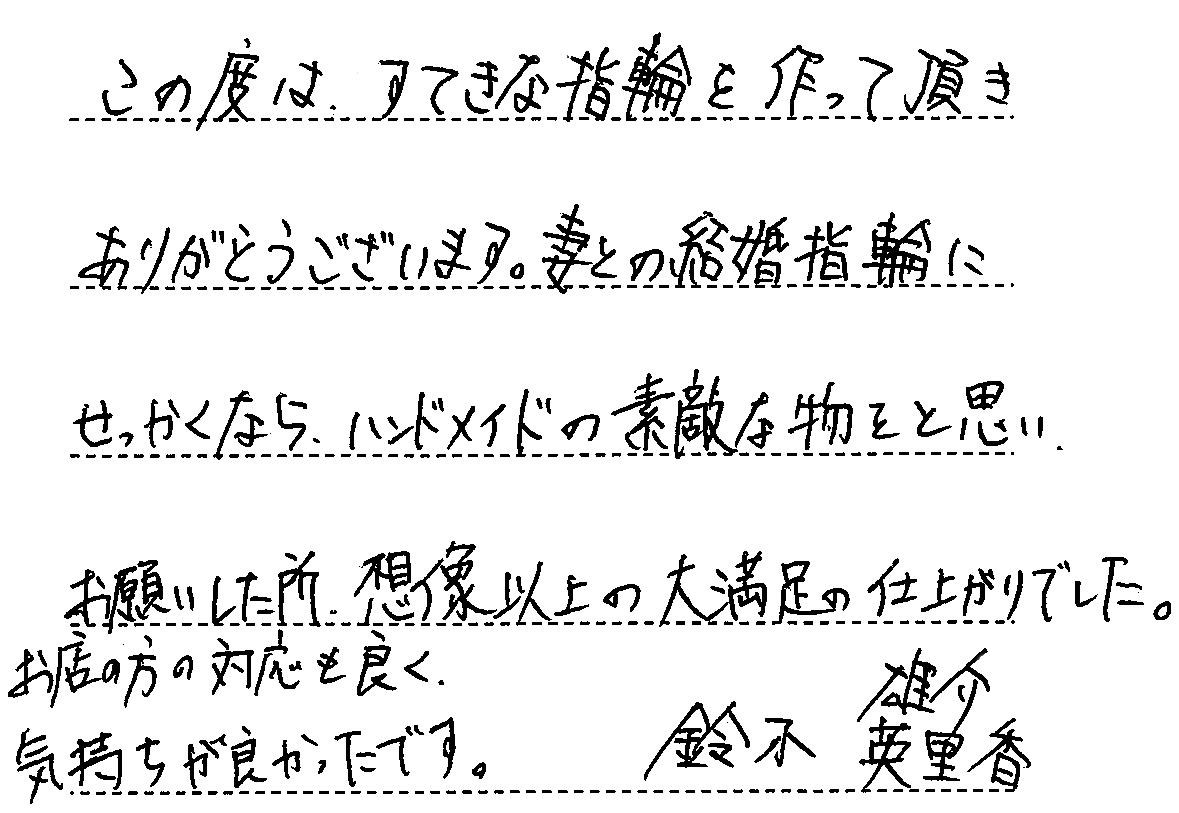 この度は、すてきな指輪を作って頂き
ありがとうございます。妻との結婚指輪に
せっかくなら、ハンドメイドの素敵な物をと思い、
お願いした所、想像以上の大満足の仕上がりでした。
お店の方の対応も良く、
気持ちが良かったです。
鈴木 雄介
英里香